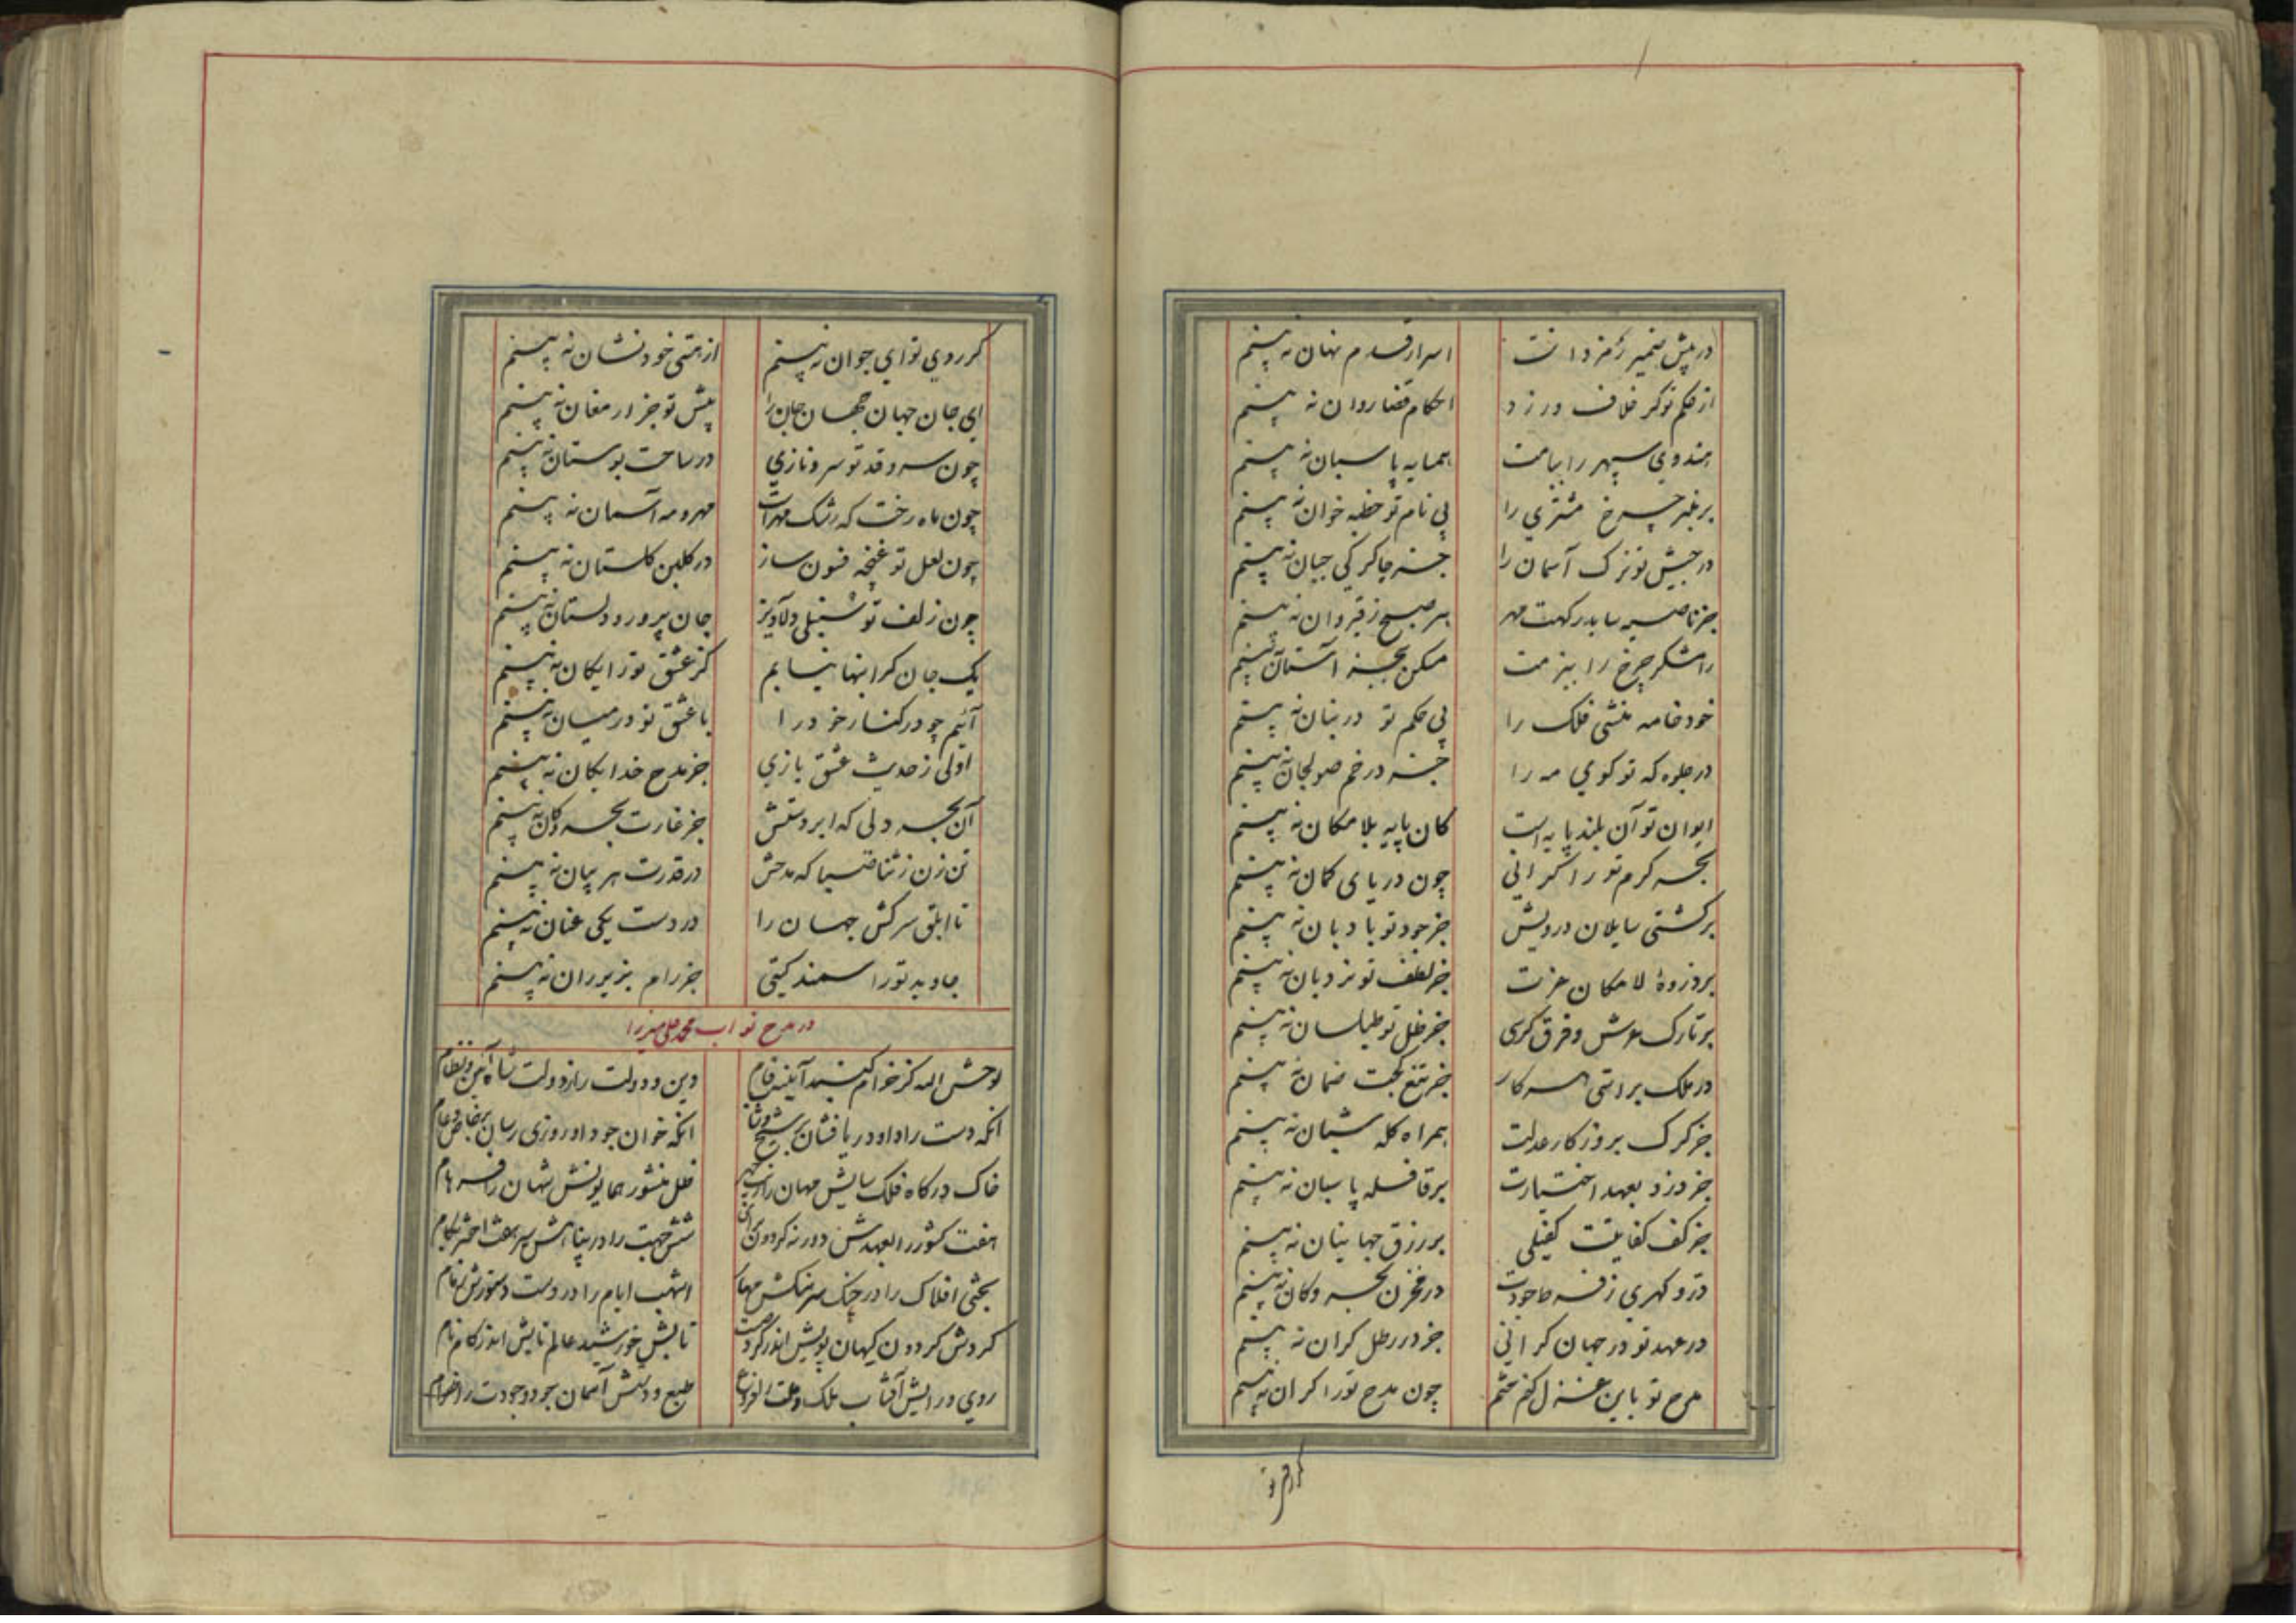 در پیش ضمیر رمز دانت اسرار قدم نهان نه بینم
از حکم تو کر خلاف ورزد احکام قضا روان نه بینم
هندوی سپهر را ببامت همسایه پاسبان نه بینم
بر منبر چرخ مشتری را بی نام تو خطبه خوان نه بینم
در جیش تو ترک آسمان را جز چاکر کی جبان نه بینم
جز ناصیه سا بدرکهت مهر هر صبح ز قیروان نه بینم
رامشکر چرخ را ببزمت مسکن بجز آستان نه بینم
خود خامه منشی فلک را بی حکم تو در بنان نه بینم
در جلوه که تو کوی مه را جز در خم صولجان نه بینم
ایوان تو آن بلند پایه است کان پایه بلامکان نه بینم
بحر کرم تو را کرانی چون دریای کمان نه بینم
بر کشتی سایلان درویش جز جود تو بادبان نه بینم
بر ذروهٔ لامکان عزت جز لطف تو نردبان نه بینم
بر تارک عرش و فرق کرسی جز ظل تو طیلسان نه بینم
در ملک براستی هر کار جز تیغ کجت ضمان نه بینم
جز کرک بروزکار عدلت همراه کله شبان نه بینم
جز دزد بعهد اختیارت بر قافله پاسبان نه بینم
جز کف کفایتت کفیلی بر رزق جهانیان نه بینم
در و کهری ز فر جودت در مخزن بحر و کان نه بینم
در عهد تو در جهان کرانی جز در رطل کران نه بینم
مدح تو باین غزل کنم ختم چون مدح تو را کران نه بینم
کر روی تو
کر روی تو ای جوان نه بینم از هستی خود نشان نه بینم
ای جان جهان جهان جان را پیش تو جز ارمغان نه بینم
چون سرو قد تو سرو نازی در ساحت بوستان نه بینم
چون ماه رخت که رشک مهر است مهر و مه آسمان نه بینم
چون لعل تو غنچه فسون ساز در کلبن کلستان نه بینم
چون زلف تو سنبلی دلاویز جان پرور و دلستان نه بینم
یک جان کرانبها نیابم کز عشق تو رایکان نه بینم
آیم چو در کنار خود را با عشق تو در میان نه بینم
اولی ز حدیث عشق بازی جز مدح خدایکان نه بینم
آن بحر دلی که ابر دستش جز غارت بحر و کان نه بینم
تن زن ز ثنا صبا که مدحش در قدرت هر بیان نه بینم
تا ابلق سرکش جهان را در دست یکی عنان نه بینم
جاوید تو را سمند کیتی جز رام بزیر ران نه بینم
در مدح نواب محمد علی میرزا
لوحش الله کز خرام کنبد آیینه فام دین و دولت راز دولت شاه آیین و نظام
آنکه دست راد او دریا فشان بر شیخ و شاب آنکه خوان جود او روزی رسان بر خاص و عام
خاک درکاه فلک سایش مهان را زیب چهر ظل منشور همایونش شهان را فر هام
هفت کشور را بعهدش دور نه کردون شش جهت را در پناهش سیر هفت اختر بکام
بختی افلاک را در چنک سرهنکش مهار اشهب ایام را در دست دستورش زمام
کردش کردون کیهان پویش اندر کرد تابش خورشید عالم تابش اندر کام نام
روی و رایش آفتاب ملک و ملت را فروغ طبع و دستش آسمان جود و جودت را قوام